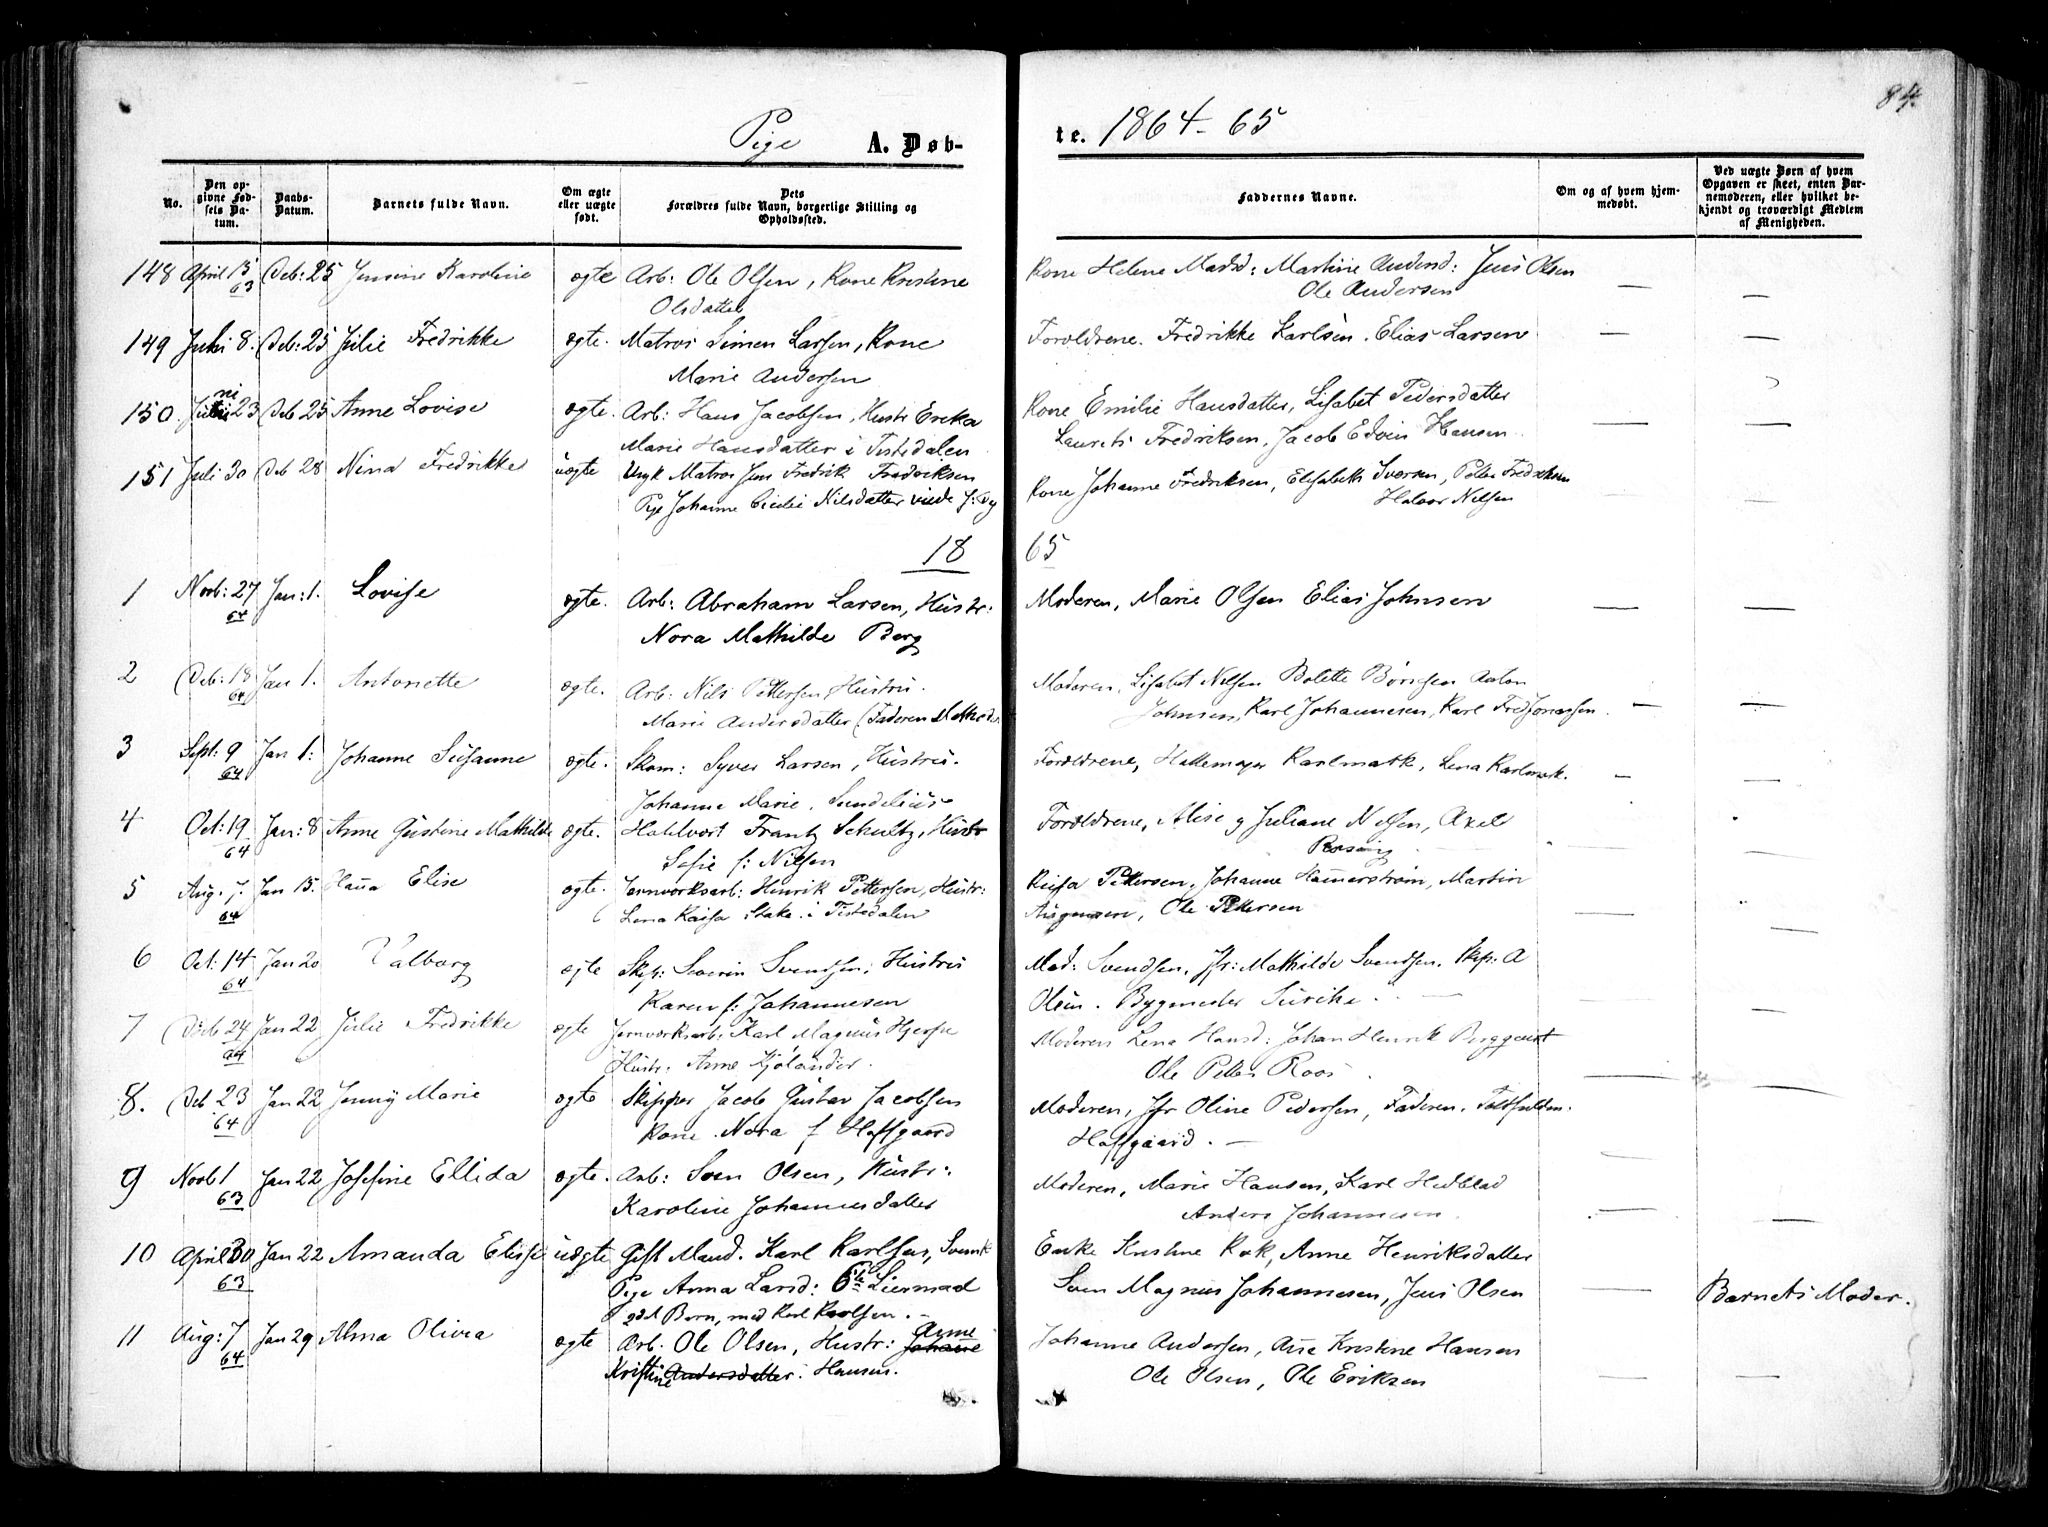 84.
Pige A. Døb-
te. 1864-65
No.
Den op-
givne Fød-
sels Da-
tum.
Daabs-
Datum.
Barnets fulde Navn.
Om ægte
eller uægte
født.
Dets
Forældres fulde Navn, borgerlige Stilling og
Opholdssted.
Faddernes Navne.
Om og af hvem hjem-
medøbt.
Ved uægte Børn af hvem
Opgaven er skeet, enten Bar-
nemoderen, eller hvilket be-
kjendt og troværdigt Medlem
af Menigheden.
148 April 15 63 Deb: 25 Jensine Karoline ægte Arb: Ole Olsen, Kone Kristine
Olsdatter
Kone Helene Madsd: Martine Andersd: Jens Olsen
Ole Andersen
149 Juli 8. Deb: 25 Julie Fredrikke ægte. Matros Simen Larsen, Kone
Marie Andersen
Forældrene. Fredrikke Karlsen. Elias Larsen
150. Juni 23 Deb 25 Anne Lovise ægte. Arb: Hans Jacobsen, Hustr Ereka
Marie Hansdatter i Tistedalen
Kone Emilie Hansdatter, Lisabet Pedersdatter
Laurets Fredriksen, Jacob Edvin Hansen
151 Juli 30 Deb 28 Nina Fredrikke uægte Ungk Matros Jens Fredrik Fredriksen
Pige Johanne Cicilie Nilsdatter
Kone Johanne Fredriksen, Elisabeth Iversen, Peter Fredriksen
Halvor Nilsen
18 65
1 Novb: 27 64 Jan: 1. Lovise ægte. Arb: Abraham Larsen, Hustr:
Nora Mathilde Berg
Moderen, Marie Olsen Elias Johnsen
2 Deb: 18 64 Jan 1. Antonette ægte. Arb: Nils Pettersen, Hustru.
Marie Andersdatter (Faderen
Moderen, Lisabet Nilsen Bolette Børnsen Anton
Johnsen, Karl Johannesen, Karl Fred Jonassen.
3 Sept: 9 64 Jan 1: Johanne Susanne ægte. Skom: Syver Larsen, Hustru.
Johanne Marie. Sundelius
Forældrene, Karlmark, Lena Karlmark.
4 Oct: 19 64 Jan: 8 Anne Gustine Mathilde ægte. Frantz Schultz, Hustr
Sofie f: Nilsen
Forældrene, Alise og Juliane Nilsen, Axel
5 Aug. 7. 64 Jan 15. Hanna Elise ægte. Jernværksarb: Henrik Pettersen, Hustr:
Lena Kaisa Stake i Tistedalen
Kaisa Pettersen, Johanne Hammerstrøm, Martin
Ole Pettersen
6 Oct: 14 64 Jan 20 Valborg ægte Skip: Severin Svendsen, Hustru
Karen f: Johannesen
Mad: Svendsen, Jfr: Mathilde Svendsen. Skip: A
Olsen. Bygmester
7 Deb 24 64 Jan 22 Julie Fredrikke ægte Jernværksarb: Karl Magnus
Hustr: Anne Kjølander.
Moderen Lena Hansd: Johan Henrik Berggvist
Ole Petter Roos
8. Deb 23 64 Jan 22 Jenny Marie ægte Skipper Jacob Gustav Jacobsen
Kone Nora f Hoffgaard
Moderen, Jfr Oline Pedersen, Faderen.
Hoffgaard.
9 Novb 1 63 Jan 22 Josefine Ellida ægte. Arb: Sven Olsen, Hustr:
Karoline Johannesdatter
Moderen, Marie Hansen, Karl Hedblad
Anders Johannesen
10 April 30 63 Jan 22 Amanda Elise uægte Gift Mand. Karl Karlsen, Svensk
Pige Anna Larsd: 6te Leiermaal
2det Barn, med Karl Karlsen.
Enke Kristine Anne Henriksdatter
Sven Magnus Johannesen, Jens Olsen
Barnets Moder.
11 Aug: 7 64 Jan 29 Alma Olivia ægte Arb. Ole Olsen, Hustr: Johanne Anne
Kristine Andersdatter. Hansen.
Johanne Andersen, Ane Kristine Hansen
Ole Olsen, Ole Eriksen